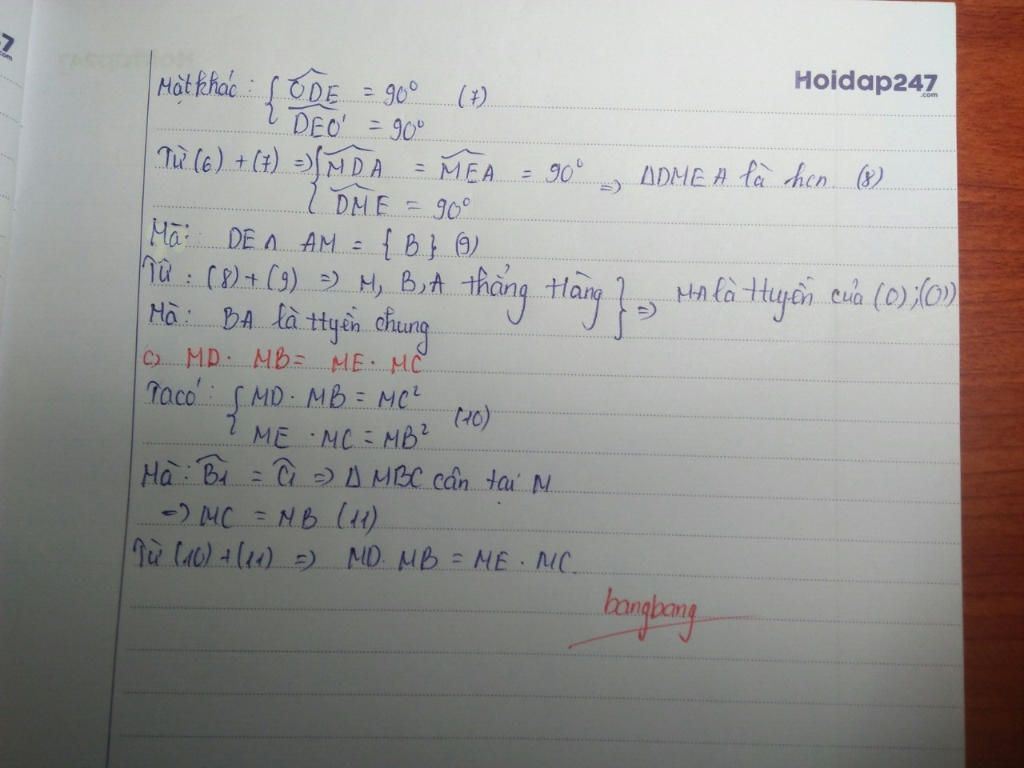 7
.com
Hoidap247
.com
Mặt khác: { ODE = 90° (7)
DEO' = 90°
Từ (6) + (7) => { MDA = MEA = 90° => ΔDMEA là hcn (8)
DME = 90°
Mà: DE ∩ AM = { B } (9)
Từ: (8)+(9) => M, B, A thẳng Hàng } => MA là Htuyến của (O);(O')
Mà: BA là Htuyến chung
c, MD. MB = ME. MC
Ta có: { MD. MB = MC²
ME .MC = MB² (10)
Mà: B1 = C1 => Δ MBC cân tại M
=> MC = MB (11)
Từ (10)+(11) => MD. MB = ME . MC.
bangbang